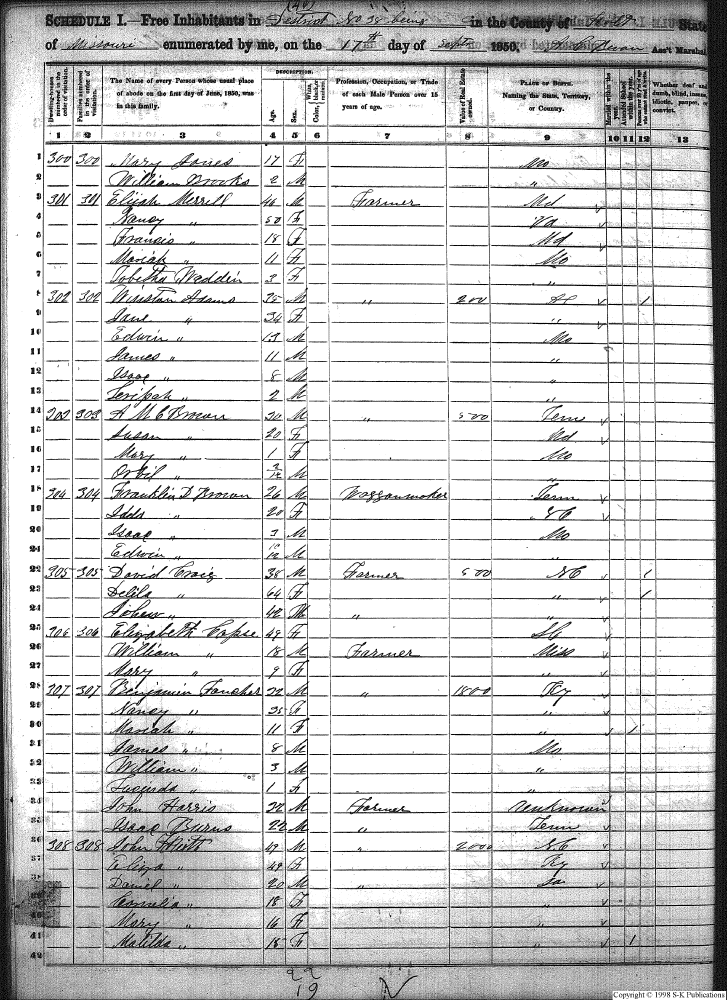 (40)
SCHEDULE I.—Free Inhabitants in District No 38 being in the County of State
of Missouri enumerated by me, on the 17th day of Sept 1850. Ass't Marshal
DESCRIPTION.
Dwelling-houses numbered in the order of visitation.
Families numbered in the order of visitation.
The Name of every Person whose usual place of abode on the first day of June, 1850, was in this family.
Age.
Sex.
Color, White, black, or mulatto.
Profession, Occupation, or Trade of each Male Person over 15 years of age.
Value of Real Estate owned.
PLACE OF BIRTH. Naming the State, Territory, or Country.
Married within the year.
Attended School within the year.
Whether deaf and dumb, blind, insane, idiotic, pauper, or convict.
1 2 3 4 5 6 7 8 9 10 11 12 13
1 300 300 Mary Jones 17 F Mo
2 William Brooks 2 M "
3 301 301 Elijah Merrell 46 M Farmer Md
4 Nancy " 50 F Va
5 Francis " 18 F Md
6 Mariah " 11 F Mo
7 Tobitha Weddin 3 F "
8 302 302 Winstan Adams 35 M " 200
9 Jane " 34 F "
10 Edwin " 13 M Mo
11 James " 11 M "
12 Isaac " 8 M "
13 2 M "
14 303 303 A M C Brown 30 M " 500 Tenn
15 Susan " 20 F Md
16 Mary " 1 F Mo
17 Orbil " M "
18 304 304 Franklin D Brown 26 M Waggonmaker Tenn
19 " 20 F
20 Isaac " 3 M Mo
21 Edwin " 10/12 M "
22 305 305 David Craig 38 M Farmer 500 NC
23 Delila " 64 F "
24 " 42 M " "
25 306 306 Elizabeth Capse 49 F SC
26 William " 18 M Farmer Miss
27 Mary " 9 F "
28 307 307 Benjamin Fancher 32 M " 1800 Ky
29 Nancy " 35 F "
30 Mariah " 11 F "
31 James " 8 M Mo
32 William " 3 M "
33 Lucinda " 1 F "
34 John Harris 32 M Farmer Unknown
35 Isaac Burns 22 M " Tenn
36 308 308 John 49 M " 2000 NC
37 Eliza " 49 F Ky
38 Daniel " 20 M "
39 Cornelia " 18 F "
40 Mary " 16 F "
41 Matilda " 15 F "
42
22
19 N
Copyright © 1998 S-K Publications